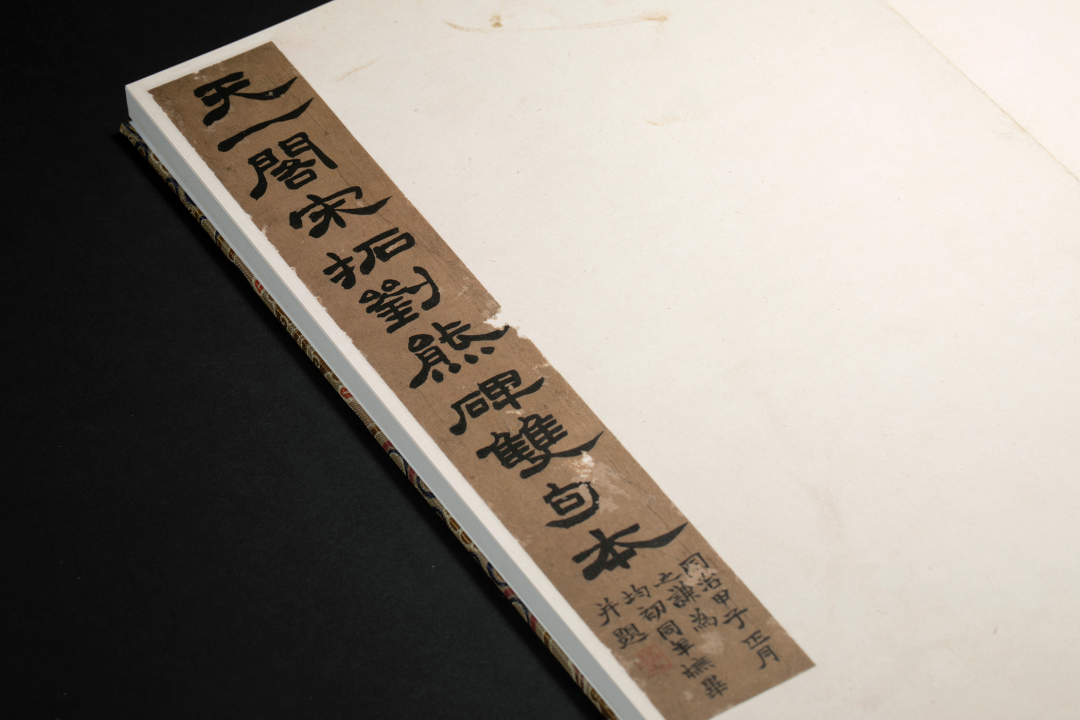 天一閣宋拓劉熊碑雙句本
同治甲子正月
之謙為
均初同年橅畢
并題